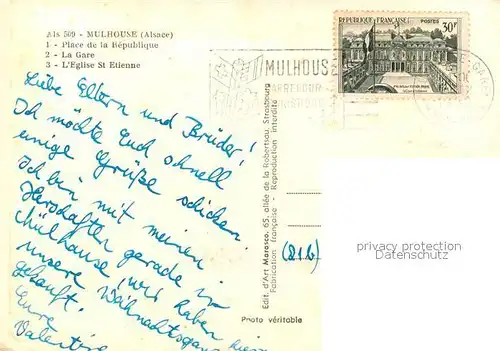 Als 509 - MULHOUSE (Alsace)
1 - Place de la République
2 - La Gare
3 - L'Eglise St Etienne
Liebe Eltern und Brüder!
Ich möchte Euch schnell
einige Grüße schicken.
Ich bin mit meinen
Herschaften gerade in
Mülhause, wir haben hier
unsere Weihnachtsgans
gekauft.
Eure
Edit. d'Art Marasco, 65, allée de la Robertsau, Strasbourg
Fabrication française - Reproduction interdite
Photo véritable
REPUBLIQUE FRANÇAISE
POSTES
30F
MULHOUSE
CARREFOUR
(816)
privacy protection
by oldthing.de